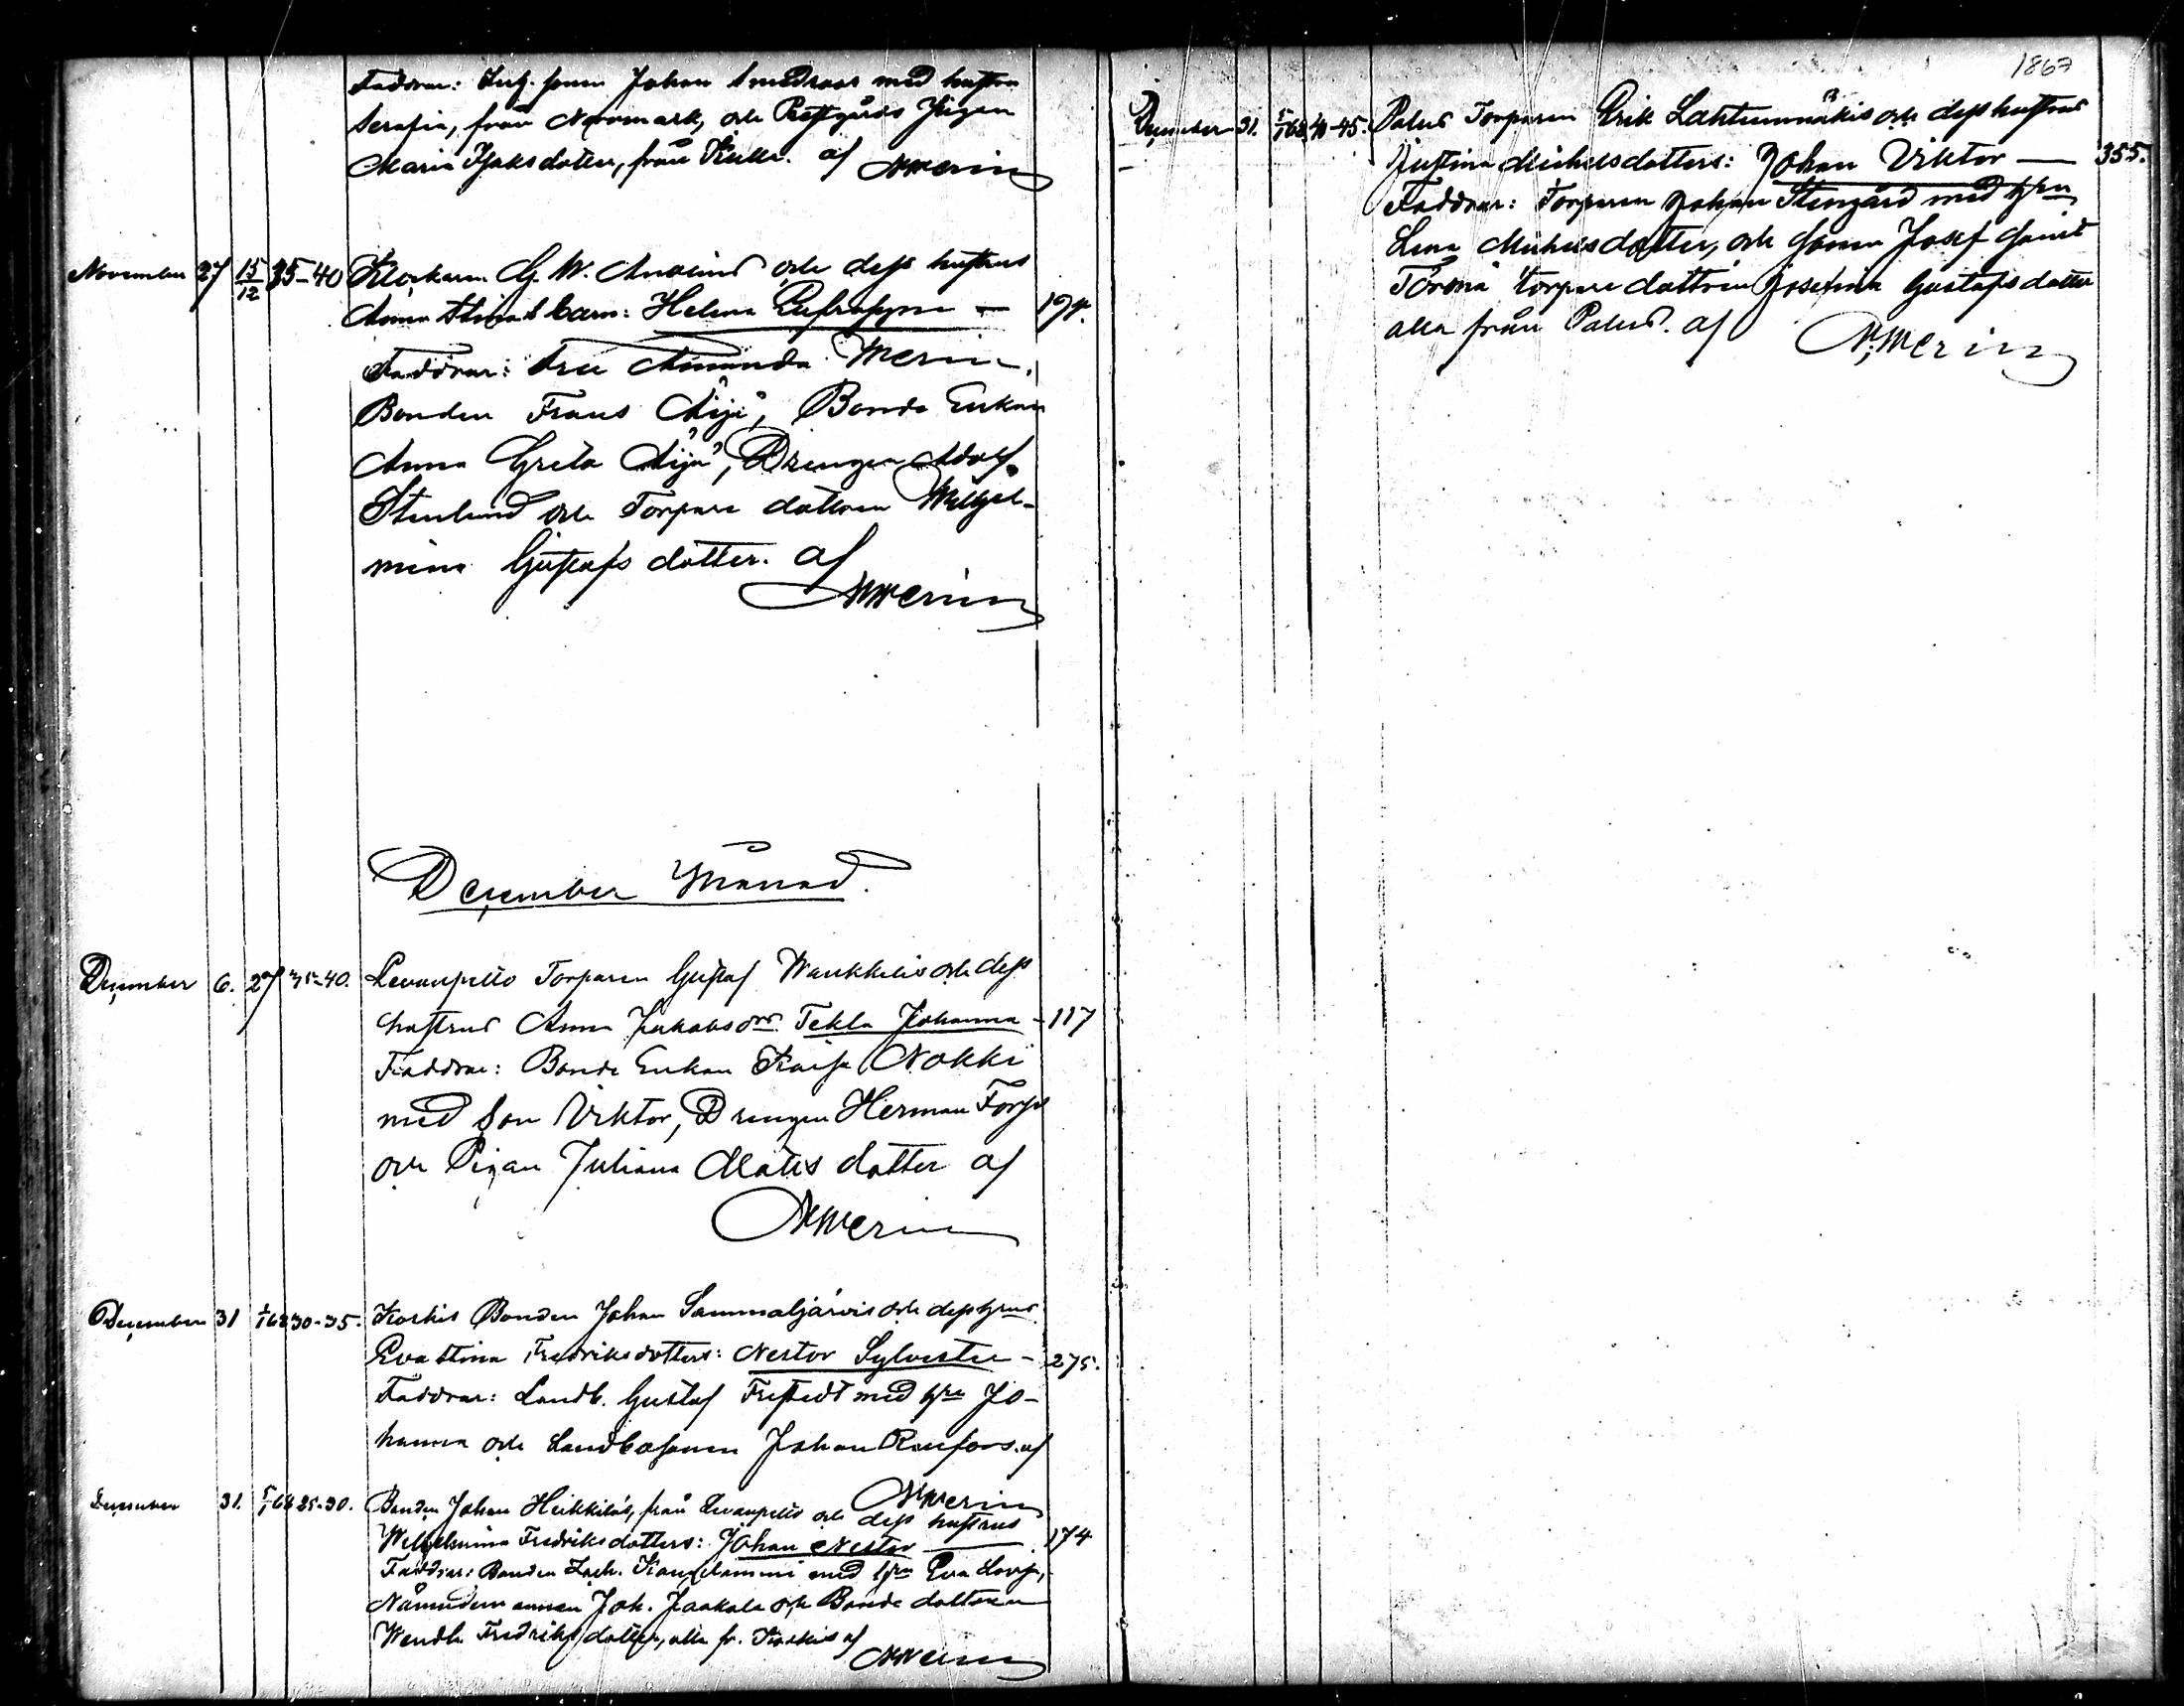 Faddrar: Inh. sonen Johan Smedsroos med hustru
Serafia, från Norrmark, och Prestgårds Pigan
Maria Isaksdotter, från Kulla. af NWerin
November 27 15/12 35-40 Klockaren G. W. Anolins och dess hustrus
Anna Stinas barn: Helena Eufrosyne — 194.
Faddrar: Fru Amanda Werin,
Bonden Frans Äijö, Bonde Enkan
Anna Greta Äijö, Drengen Adolf
Stenlund och Torpare dottren Wilhel-
mina Gustafsdotter. af
NWerin
December Månad.
December 6. 27 35-40. Levanpelto Torparen Gustaf Wankkilis och dess
hustrus Anna Jakobsdrs Tekla Johanna - 117
Faddrar: Bonde Enkan Kaisa Nokki
med Son Viktor, Drengen Herman Forss
och Pigan Juliana Matts dotter af
NWerin
December 31 1/1 68 30-35. Koskis Bonden Johan Sammaljärvis och dess hrus
Eva Stina Fredriksdotters: Nestor Sylvester - 275.
Faddrar: Landb. Gustaf Fristedt med hru Jo-
hanna och Landbosonen Johan Renfors. af
NWerin
December 31. 5/1 68 25-30. Bonden Johan Heikkiläs, från Levanpelto och dess hustrus
Wilhelmina Fredriksdotters: Johan Nestor — 174
Faddrar: Bonden Zach. Kangasniemi med hru Eva Lovisa,
Nämndemannen Joh. Jaakola och Bonde dottren
Wendla Fredriksdotter, alla fr. Koskis af
NWerin
1867
December 31. 5/1 68 40-45. Palus Torparen Erik Lahtumäkis och dess hustrus
Justina Michelsdotters: Johan Viktor — 355.
Faddrar: Torparen Johan Stengård med hru
Lena Michelsdotter, och Sonen Josef samt
Törönä torpare dottren Josefina Gustafsdotter
alla från Palus. af NWerin